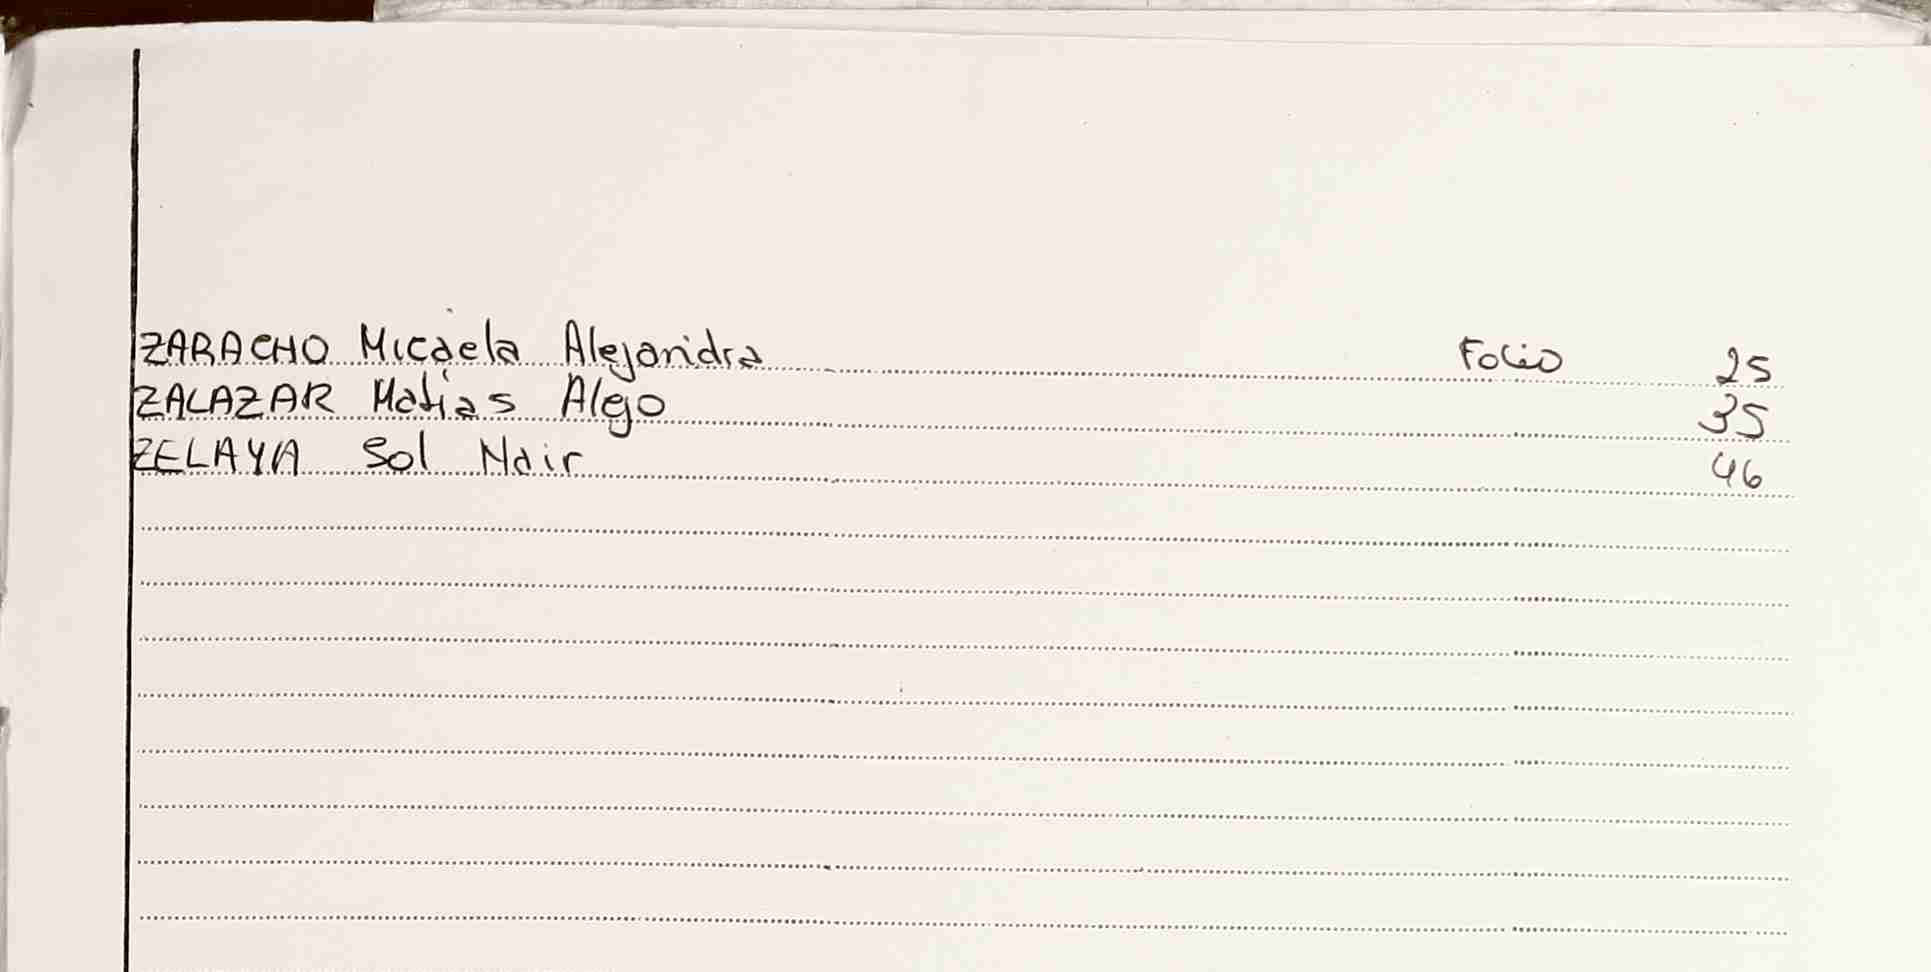 ZARACHO Micaela Alejandra Folio 25
ZALAZAR Matias Alejo 35
ZELAYA Sol Nair 46